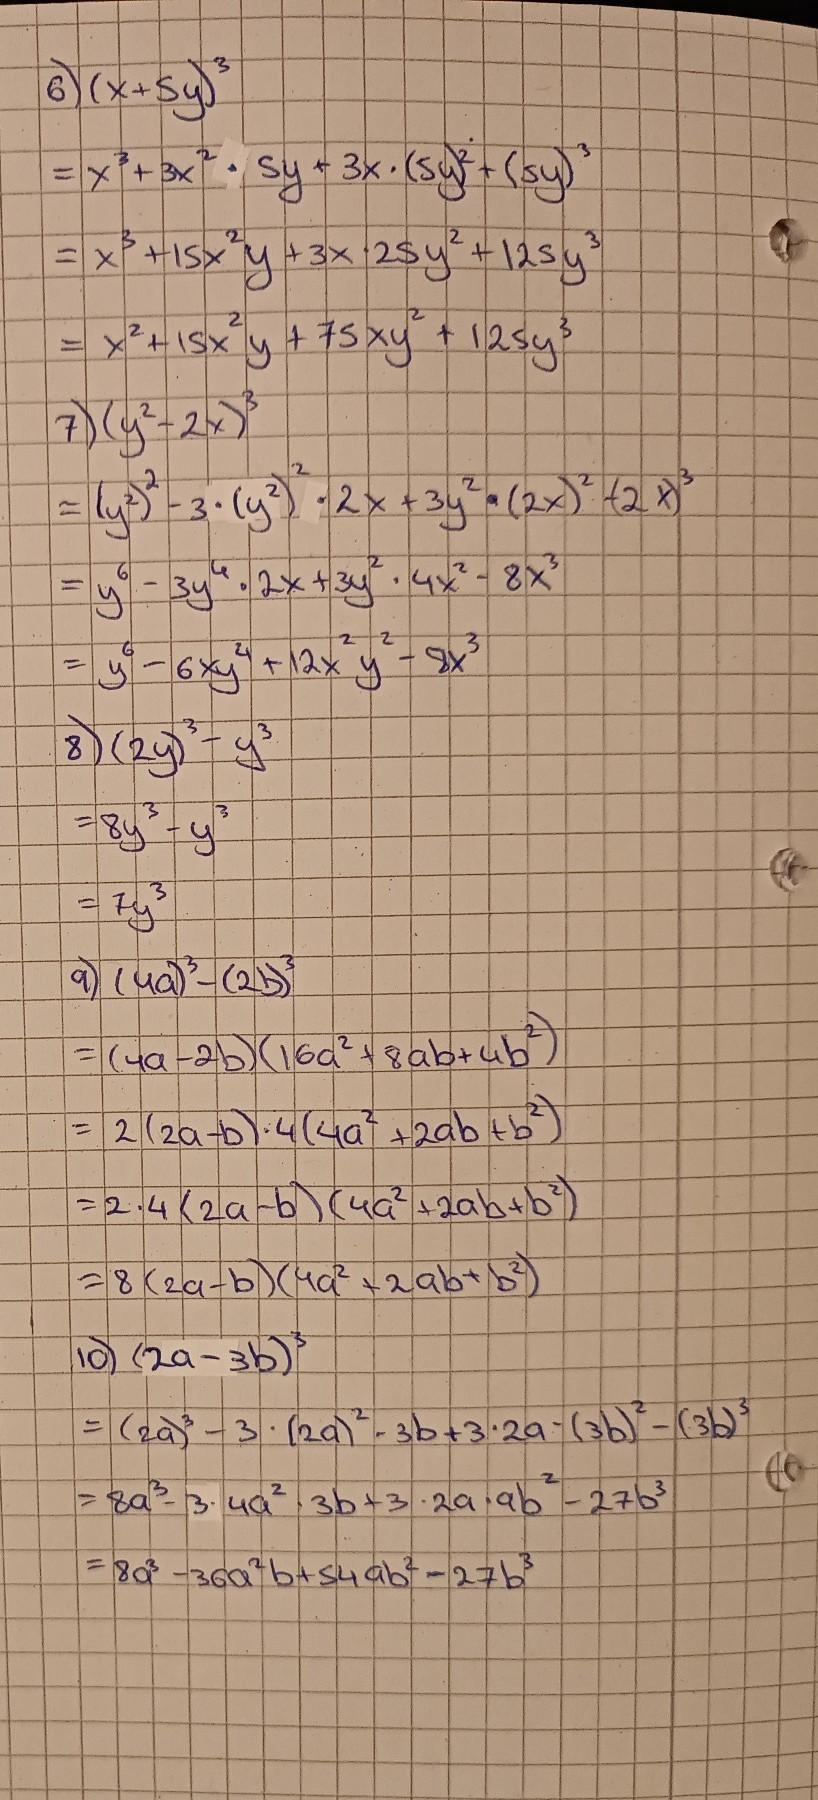 6) (x+5y)³
= x³+3x² · 5y + 3x·(5y)²+(5y)³
= x³+15x²y+3x·25y²+125y³
= x²+15x²y+75xy²+125y³
7) (y²-2x)³
= (y²)² - 3·(y²)²·2x+3y²·(2x)²-(2x)³
= y⁶ - 3y⁴·2x+3y²·4x²-8x³
= y⁶-6xy⁴+12x²y²-8x³
8) (2y)³-y³
=8y³-y³
= 7y³
9) (4a)³-(2b)³
=(4a-2b)(16a²+8ab+4b²)
= 2(2a-b)·4(4a²+2ab+b²)
=2·4(2a-b)(4a²+2ab+b²)
=8(2a-b)(4a²+2ab+b²)
10) (2a-3b)³
= (2a)³-3·(2a)²·3b+3·2a·(3b)²-(3b)³
=8a³-3·4a²·3b+3·2a·9b²-27b³
=8a³-36a²b+54ab²-27b³